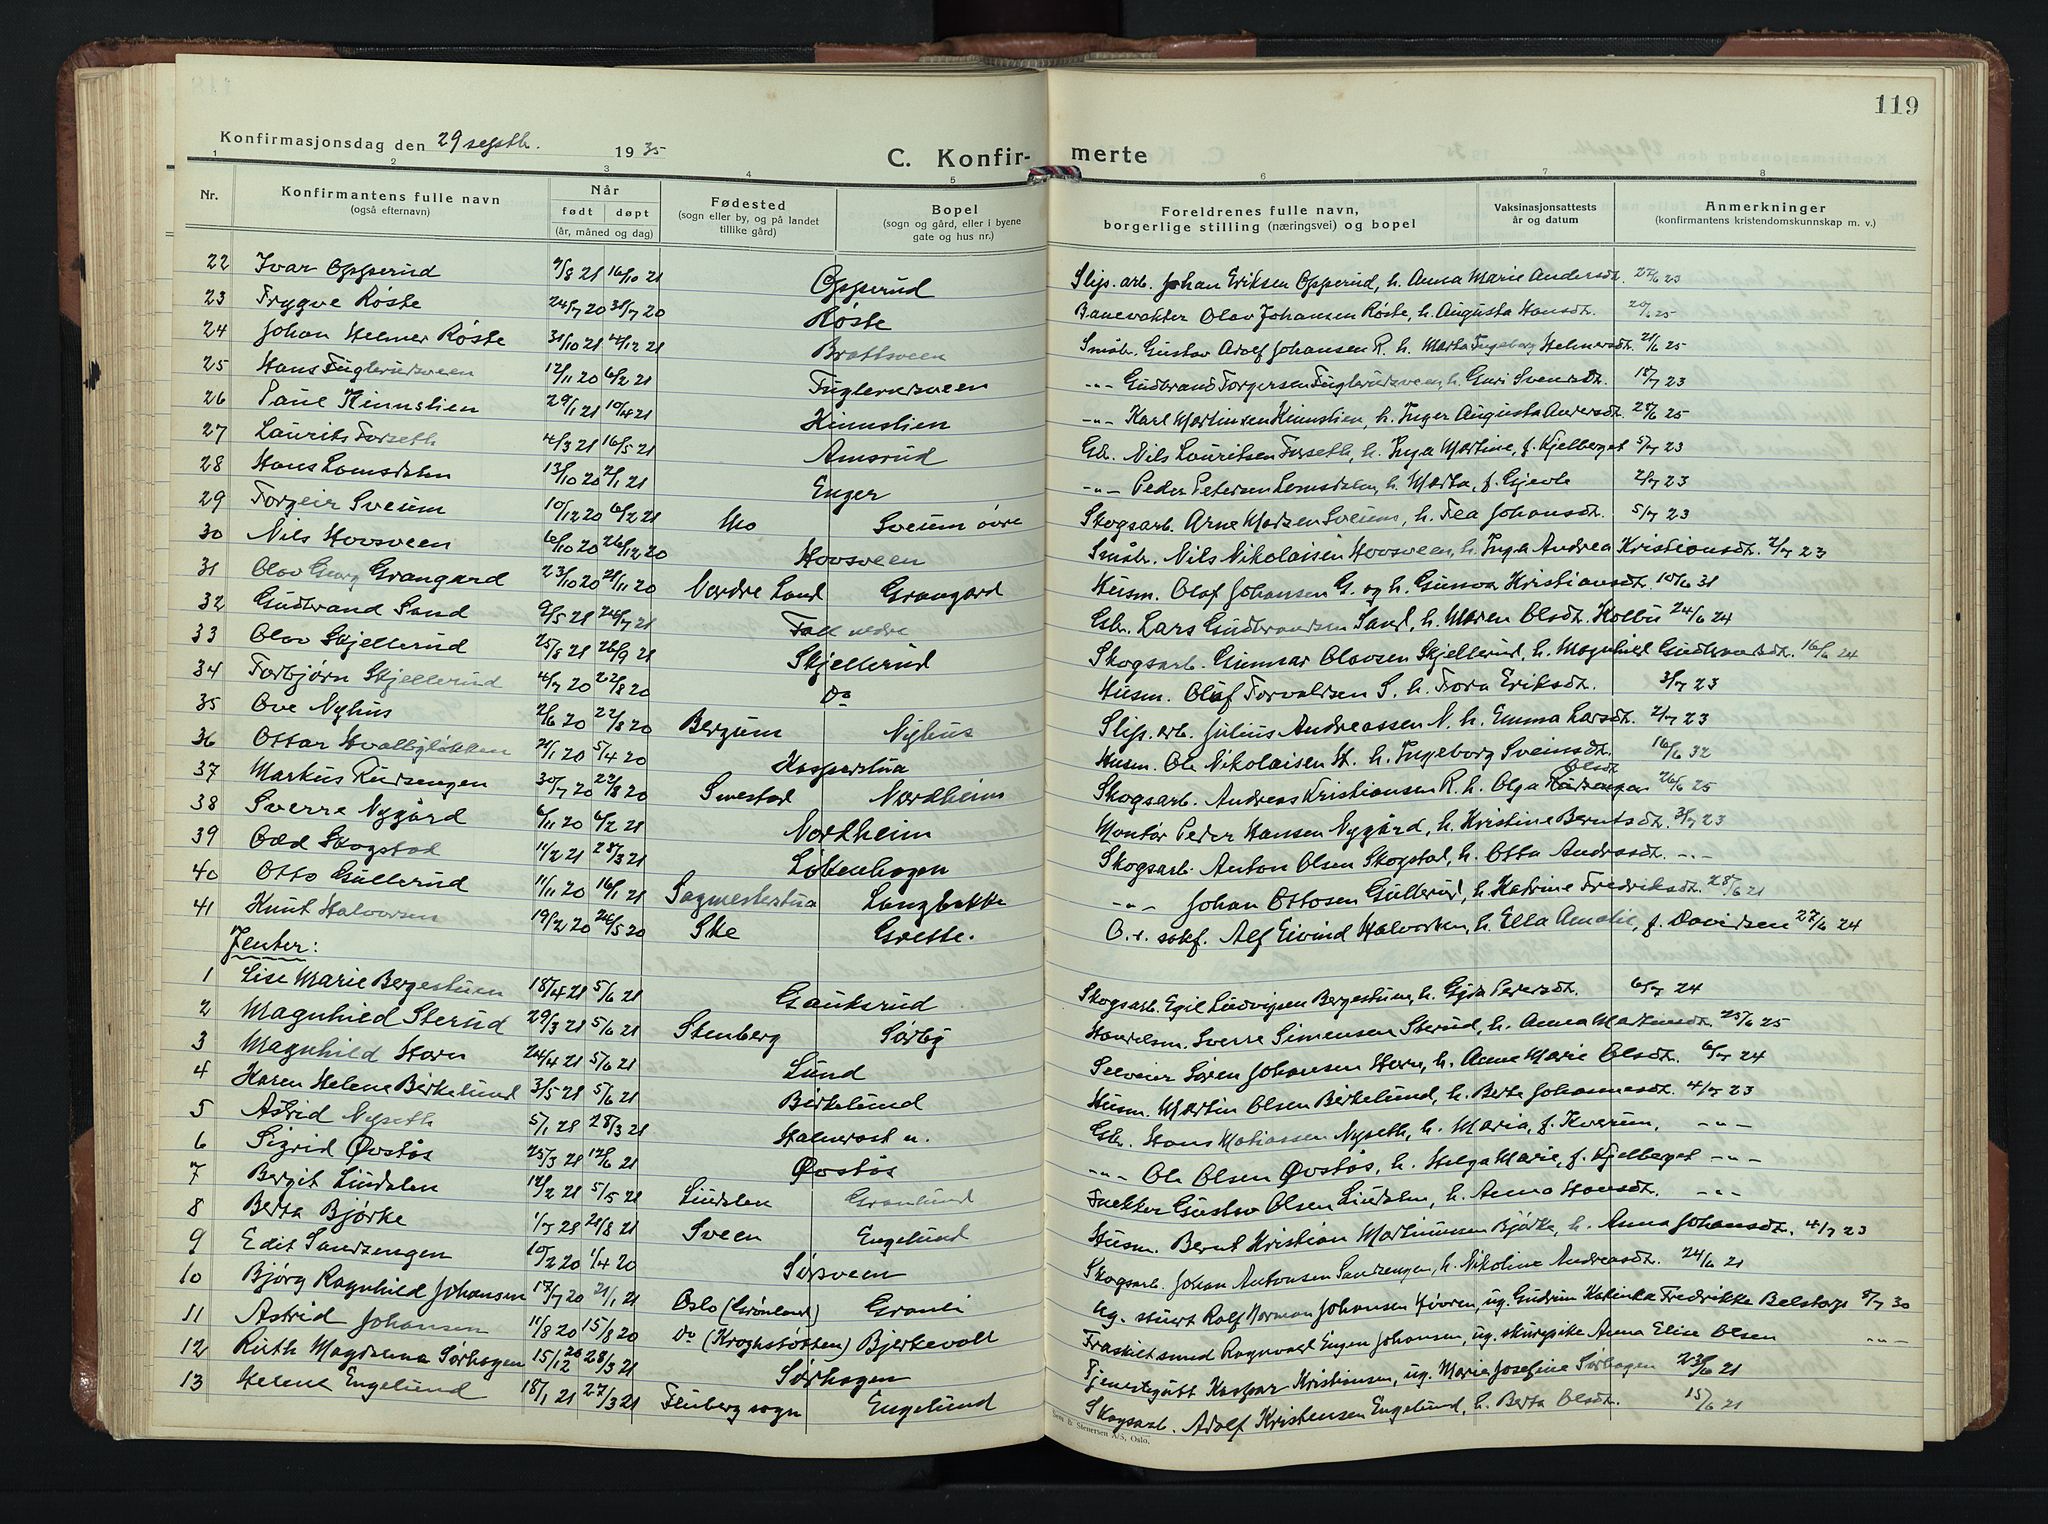 119
Konfirmasjonsdag den 29 septb. 1935
C. Konfir- merte
1 2 3 4 5 6 7 8
Nr. Konfirmantens fulle navn (også efternavn) Når født døpt (år, måned og dag) Fødested (sogn eller by, og på landet tillike gård) Bopel (sogn og gård, eller i byene gate og hus nr.) Foreldrenes fulle navn, borgerlige stilling (næringsvei) og bopel Vaksinasjonsattests år og datum Anmerkninger (konfirmantens kristendomskunnskap m. v.)
22 Ivar Opperud 7/8 21 16/10 21 Opperud Slip. arb. Johan Eriksen Opperud, h. Anna Marie Andersdt. 27/6 23
23 Trygve Røste 24/7 20 31/7 20 Røste Banevokter Olav Johansen Røste, h. Augusta Hansdt. 20/6 25
24 Johan Helmer Røste 31/10 21 4/12 21 Brattsveen Småbr. Gustav Adolf Johansen R. h. Marta Ingeborg Helmersdt. 21/6 25
25 Hans Fuglerudsveen 12/11 20 6/2 21 Fuglerudsveen -"- Gudbrand Torgersen Fuglerudsveen, h. Guri Svensdt. 18/7 23
26 Paul Kinnslien 29/1 21 10/4 21 Kinnslien -"- Karl Martinsen Kinnslien, h. Inger Augusta Andersdt. 28/6 25
27 Laurits Forseth 4/3 21 16/5 21 Amsrud Gbr. Nils Lauritsen Forseth, h. Inga Martine, f. Kjelberget 5/7 23
28 Hans Lomsdalen 13/10 20 2/1 21 Enger -"- Peder Petersen Lomsdalen, h. Marta, f. Gjevle 2/7 23
29 Torgeir Sveum 10/12 20 6/2 21 Mo Sveum øvre Skogsarb. Arne Madsen Sveum, h. Tea Johansdt. 5/7 23
30 Nils Hovsveen 6/10 20 26/12 20 Hovsveen Småbr. Nils Nikolaisen Hovsveen, h. Inga Andrea Kristiansdt. 2/7 23
31 Olav Georg Grangard 23/10 20 21/11 20 Nordre Land Grangard Husm. Olaf Johansen G. og h. Gunvor Kristiansdt. 10/6 31
32 Gudbrand Sand 9/5 21 24/7 21 Fall nedre Gbr. Lars Gudbrandsen Sand, h. Maren Olsdt. Holbu 24/6 24
33 Olav Skjellerud 25/8 21 26/9 21 Skjellerud Skogsarb. Gunnar Olavsen Skjellerud, h. Magnhild Gudbrandsdt. 16/6 24
34 Torbjørn Skjellerud 4/7 20 22/8 20 Do Husm. Oluf Torvaldsen S. h. Tora Eriksdt. 3/7 23
35 Ove Nyhus 2/6 20 22/8 20 Bergum Nyhus Slip. arb. Julius Andreassen N. h. Emma Larsdt. 2/7 23
36 Ottar Hvalbyløkken 21/1 20 5/4 20 Kasperstua Husm. Ole Nikolaisen H. h. Ingeborg Sveinsdt. 16/6 32
37 Markus Rudsengen 30/7 20 22/8 20 Smestad Nordheim Skogsarb. Andreas Kristiansen R. h. Olga Olsdt. Rudsengen 26/6 25
38 Sverre Nygård 6/11 20 6/2 21 Nordheim Montør Peder Hansen Nygård, h. Kristine Berntsdt. 3/7 23
39 Odd Skogstad 11/2 21 28/3 21 Løkenhagen Skogsarb. Anton Olsen Skogstad, h. Otta Andrasdt. -"-
40 Otto Gullerud 11/11 20 16/1 21 Sagmesterstua Langbakke -"- Johan Ottosen Gullerud, h. Katrine Fredriksdt. 28/6 21
41 Knut Halvorsen 19/2 20 24/5 20 Ske Grette. O.r. sakf. Alf Eivind Halvorsen, h. Ella Amalie, f. Davidsen 27/6 24
Jenter:
1 Lise Marie Bergestuen 18/4 21 5/6 21 Gauksrud Skogsarb. Egil Ludvigsen Bergestuen, h. Gyda Pedersdt. 6/7 24
2 Magnhild Sterud 29/3 21 5/6 21 Stenberg Sørby Handelsm. Sverre Simensen Sterud, h. Anna Martinsdt. 25/6 25
3 Magnhild Horn 24/4 21 5/6 21 Lund Selveier Søren Johansen Horn, h. Anne Marie Olsdt. 6/7 24
4 Karen Helene Birkelund 3/5 21 5/6 21 Birkelund Husm. Martin Olsen Birkelund, h. Berte Johannesdt. 4/7 23
5 Astrid Nyseth 5/1 21 28/3 21 Halmrast n. Gbr. Hans Matiassen Nyseth, h. Maria, f. Kverum, -"-
6 Sigrid Øvstøs 25/3 21 12/6 21 Øvstøs -"- Ole Olsen Øvstøs, h. Helga Marie, f. Kjelberget -"-
7 Bergit Lindalen 12/2 21 5/5 21 Lindalen Granlund Gustav Olsen Lindalen, h. Anna Hansdt. -"-
8 Berta Bjørke 1/7 21 28/8 21 Sveen Engelund Husm. Bernt Kristian Martinusen Bjørke, h. Anna Johansdt. 4/7 23
9 Edit Sandsengen 10/2 20 1/4 20 Sørsveen Skogsarb. Johan Antonsen Sandsengen, h. Nikoline Andreasdt. 24/6 21
10 Bjørg Ragnhild Johansen 17/7 20 2/1 21 Oslo (Grønland) Granli Ug. stuert Rolf Norman Johansen Høvren, ug. Gudrun Katinka Fredrikke Belstorp 8/7 30
11 Astrid Johansen 11/8 20 15/8 20 Do (Kroghstøtten) Bjerkevoll Fraskilt smed Ragnvald Eugen Johansen, ug. skurepike Anna Elise Olsen -"-
12 Ruth Magdalena Sørhagen 15/12 20 28/3 21 Sørhagen Tjenestegutt Kaspar Kristiansen, ug. Marie Josefine Sørhagen 23/6 21
13 Helene Engelund 18/1 21 27/3 21 Fluberg sogn Engelund Skogsarb. Adolf Kristensen Engelund, h. Berta Olsdt. 15/6 21
Sem & Stenersen A/S, Oslo.